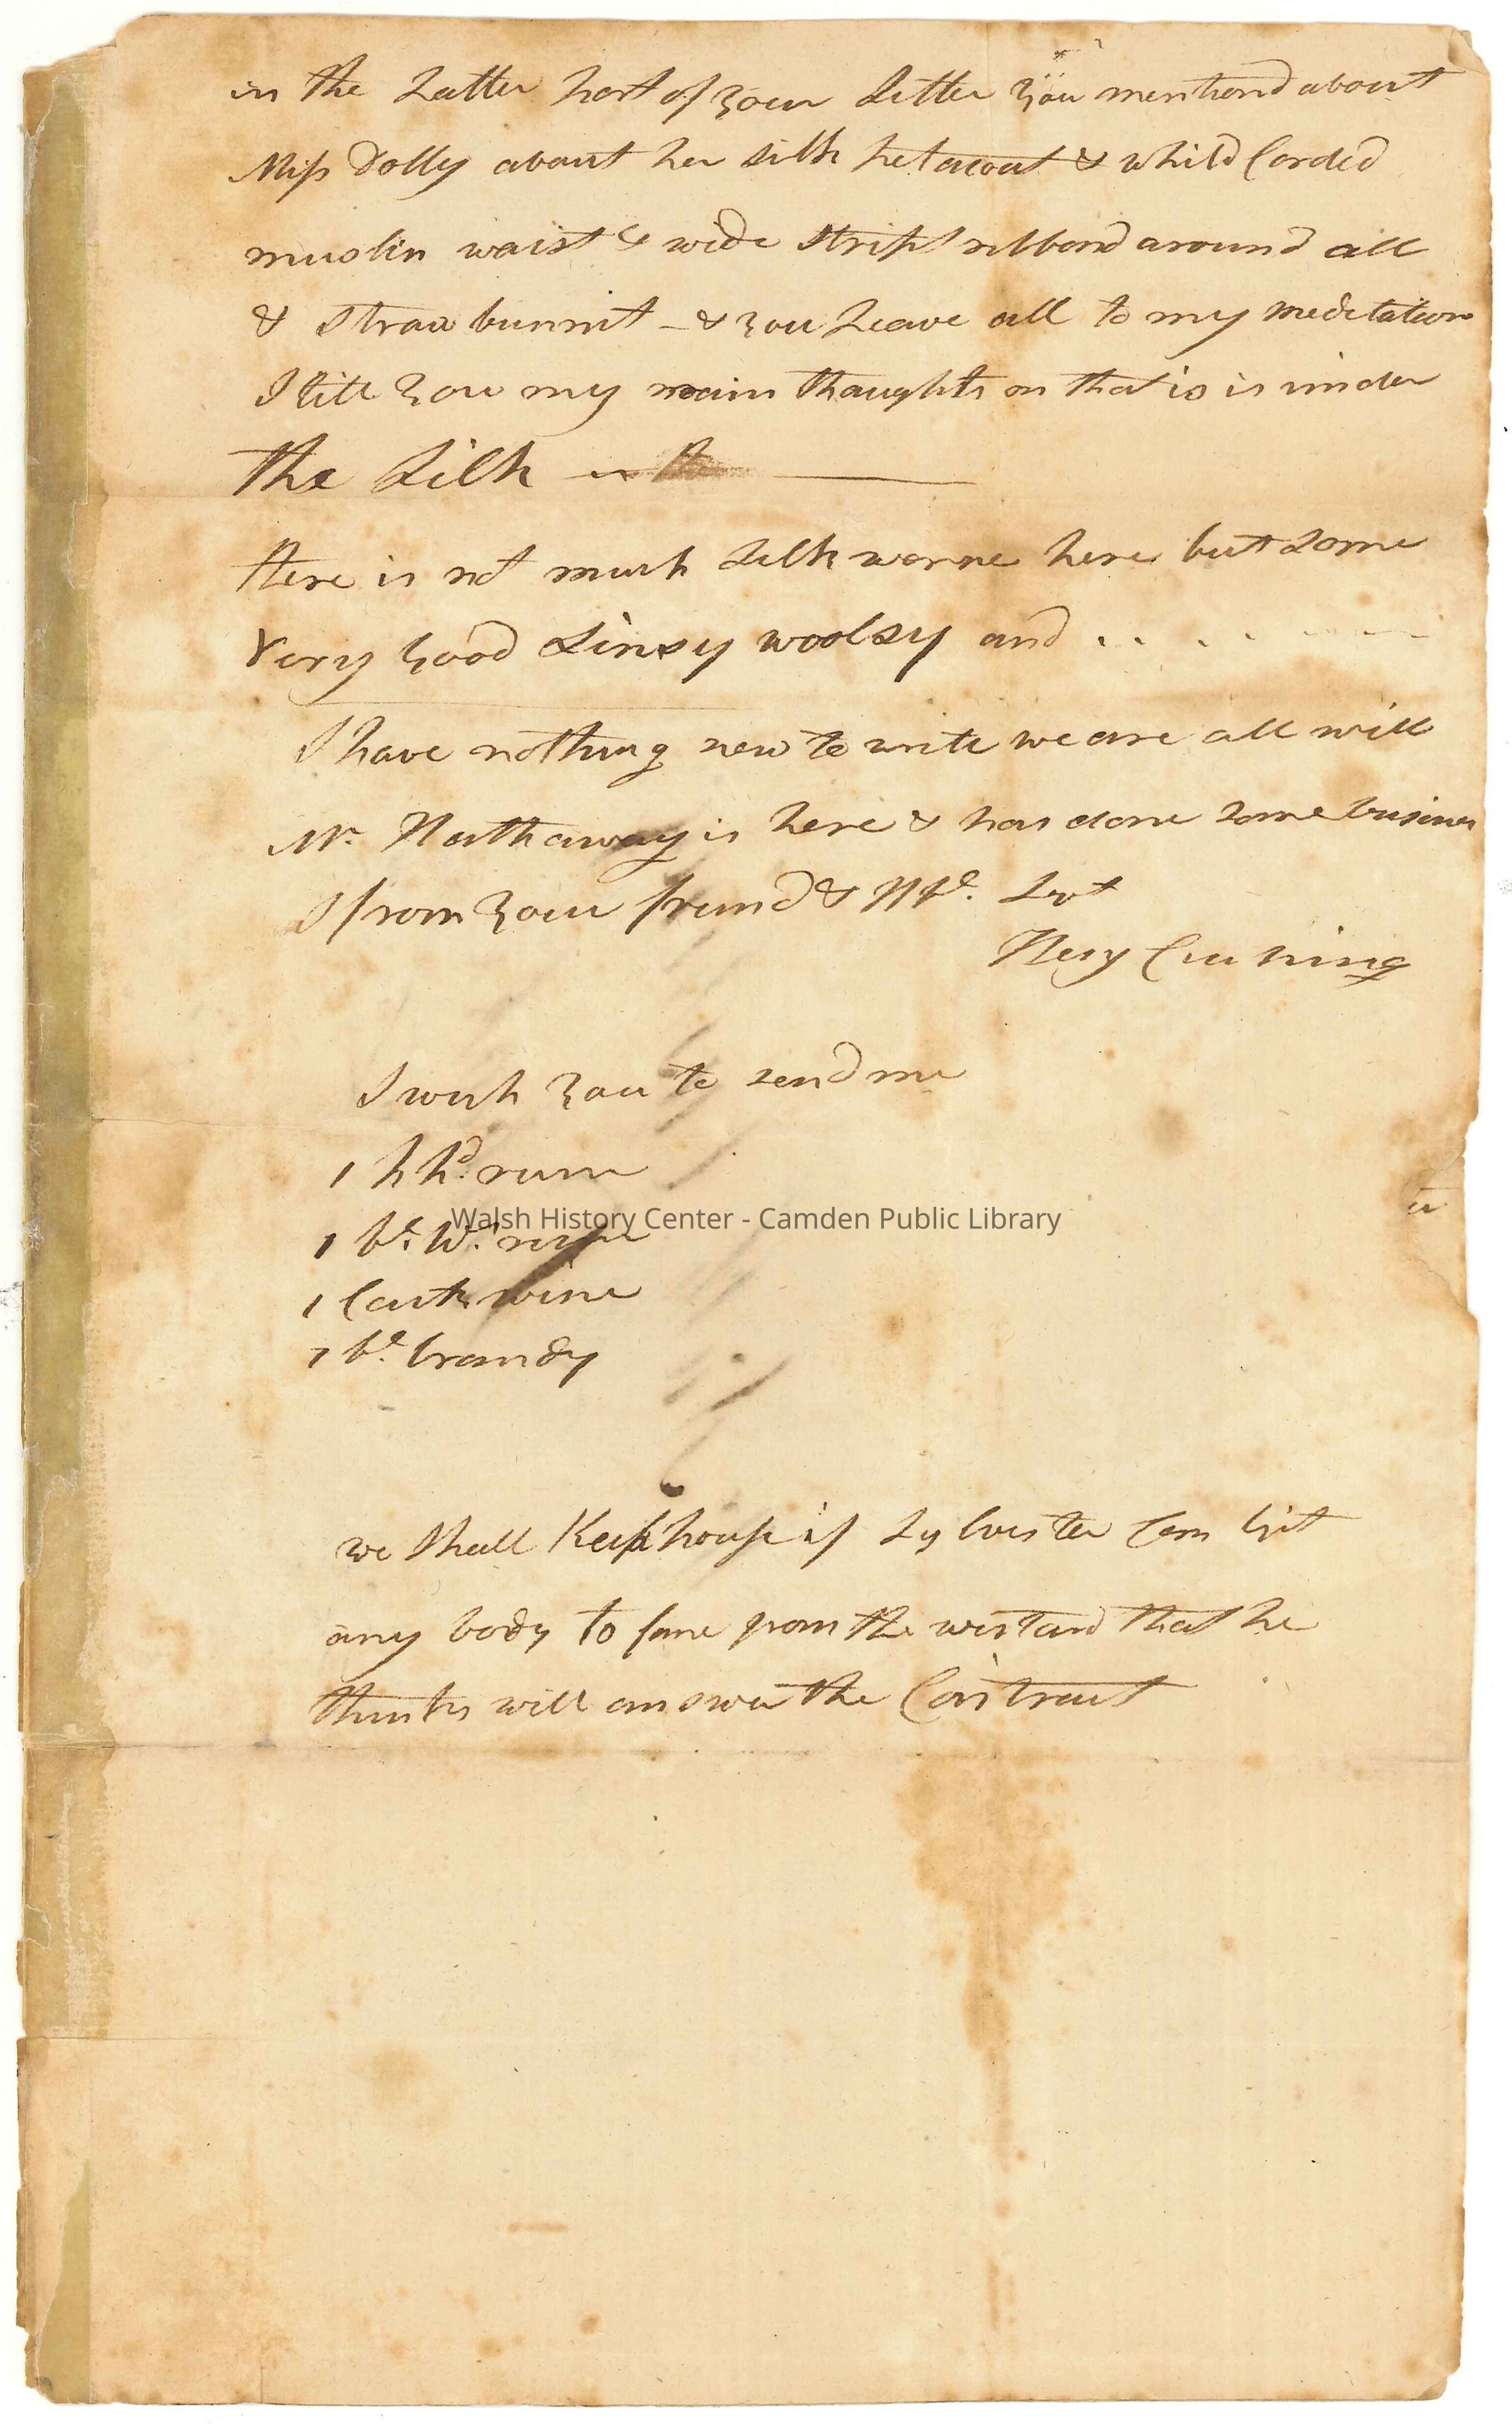 in the Latter part of your Letter you mentiond about
Miss Dolly about her silk petacoat & whitd Corded
muslin waist & wide Stript ribbond around all
& Straw bunnit - & you Leave all to my meditation
I till you my main thaughts on that is is under
the Silk
Here is not much Silk worne here but Some
Very good Linsy woolsy and
I have nothing new to write we are all will
Mr. Hathaway is here & has done some business
I from your frind & Hbe. Svt
Hery Cushing
I wish you to send me
1 hhd. rum
1 bl. W. rum
1 Cask wine
1 bl. brandy
Walsh History Center - Camden Public Library
we Shall Keep house if Sylvester Can git
any body to Come from the westard that he
thinks will answer the Contract